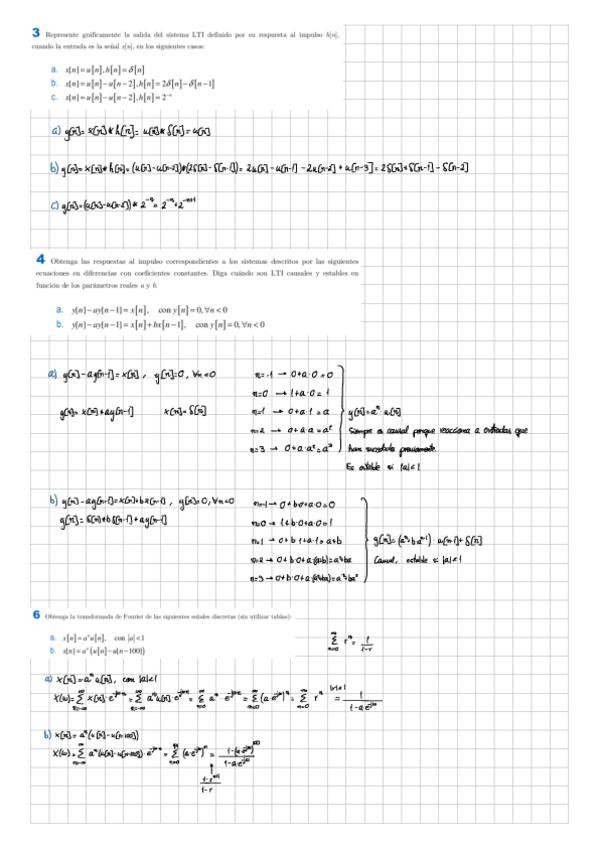 3 Represente gráficamente la salida del sistema LTI definido por su respuesta al impulso h[n],
cuando la entrada es la señal x[n], en los siguientes casos:
a. x[n]=u[n], h[n]=δ[n]
b. x[n]=u[n]−u[n−2], h[n]=2δ[n]−δ[n−1]
c. x[n]=u[n]−u[n−2], h[n]=2⁻ⁿ
a) y[n]= x[n]*h[n]= u[n]*δ[n]=u[n]
b) y[n]=x[n]*h[n]=(u[n]-u[n-2])*(2δ[n]-δ[n-1])= 2u[n]-u[n-1]-2u[n-2]+u[n-3]=2δ[n]+δ[n-1]-δ[n-2]
c) y[n]=(u[n]-u[n-2])*2⁻ⁿ=2⁻ⁿ+2⁻ⁿ⁺¹
4 Obtenga las respuestas al impulso correspondientes a los sistemas descritos por las siguientes
ecuaciones en diferencias con coeficientes constantes. Diga cuándo son LTI causales y estables en
función de los parámetros reales a y b.
a. y[n]−ay[n−1]=x[n], con y[n]=0,∀n<0
b. y[n]−ay[n−1]=x[n]+bx[n−1], con y[n]=0,∀n<0
a) y[n]-ay[n-1]=x[n], y[n]=0, ∀n<0
n=-1 → 0+a·0=0
n=0 → 1+a·0=1
y[n]=x[n]+ay[n-1] x[n]=δ[n]
n=1 → 0+a·1=a
y[n]=aⁿ u[n]
n=2 → 0+a·a=a²
Siempre es causal porque reacciona a entradas que
n=3 → 0+a·a²=a³
han sucedido previamente.
Es estable si |a|<1
b) y[n]-ay[n-1]=x[n]+bx[n-1], y[n]=0,∀n<0
n=-1→0+b·0+a·0=0
y[n]=δ[n]+bδ[n-1]+ay[n-1]
n=0→1+b·0+a·0=1
n=1→0+b·1+a·1=a+b
y[n]=(aⁿ+baⁿ⁻¹)·u[n-1]+δ[n]
n=2→0+b·0+a·(a+b)=a²+ba
Causal, estable si |a|<1
n=3→0+b·0+a·(a²+ba)=a³+ba²
6 Obtenga la transformada de Fourier de las siguientes señales discretas (sin utilizar tablas):
a. x[n]=aⁿu[n], con |a|<1
b. x[n]=aⁿ(u[n]−u[n−100])
∑_{n=0}^{∞} rⁿ = 1/(1-r)
a) x[n]=aⁿ u[n], con |a|<1
X(ω)=∑_{n=-∞}^{∞} x[n]·e^{-jωn}=∑_{n=-∞}^{∞} aⁿu[n]·e^{-jωn}=∑_{n=0}^{∞} aⁿ·e^{-jωn}=∑_{n=0}^{∞}(a·e^{-jω})ⁿ=∑_{n=0}^{∞} rⁿ =^{|r|<1} 1/(1-a·e^{-jω})
b) x[n]=aⁿ(u[n]-u[n-100])
X(ω)=∑_{n=-∞}^{∞} aⁿ(u[n]-u[n-100])·e^{-jωn}=∑_{n=0}^{99}(a·e^{-jω})ⁿ=(1-(a·e^{-jω})^{100})/(1-a·e^{-jω})
↑
(1-r^{n+1})/(1-r)